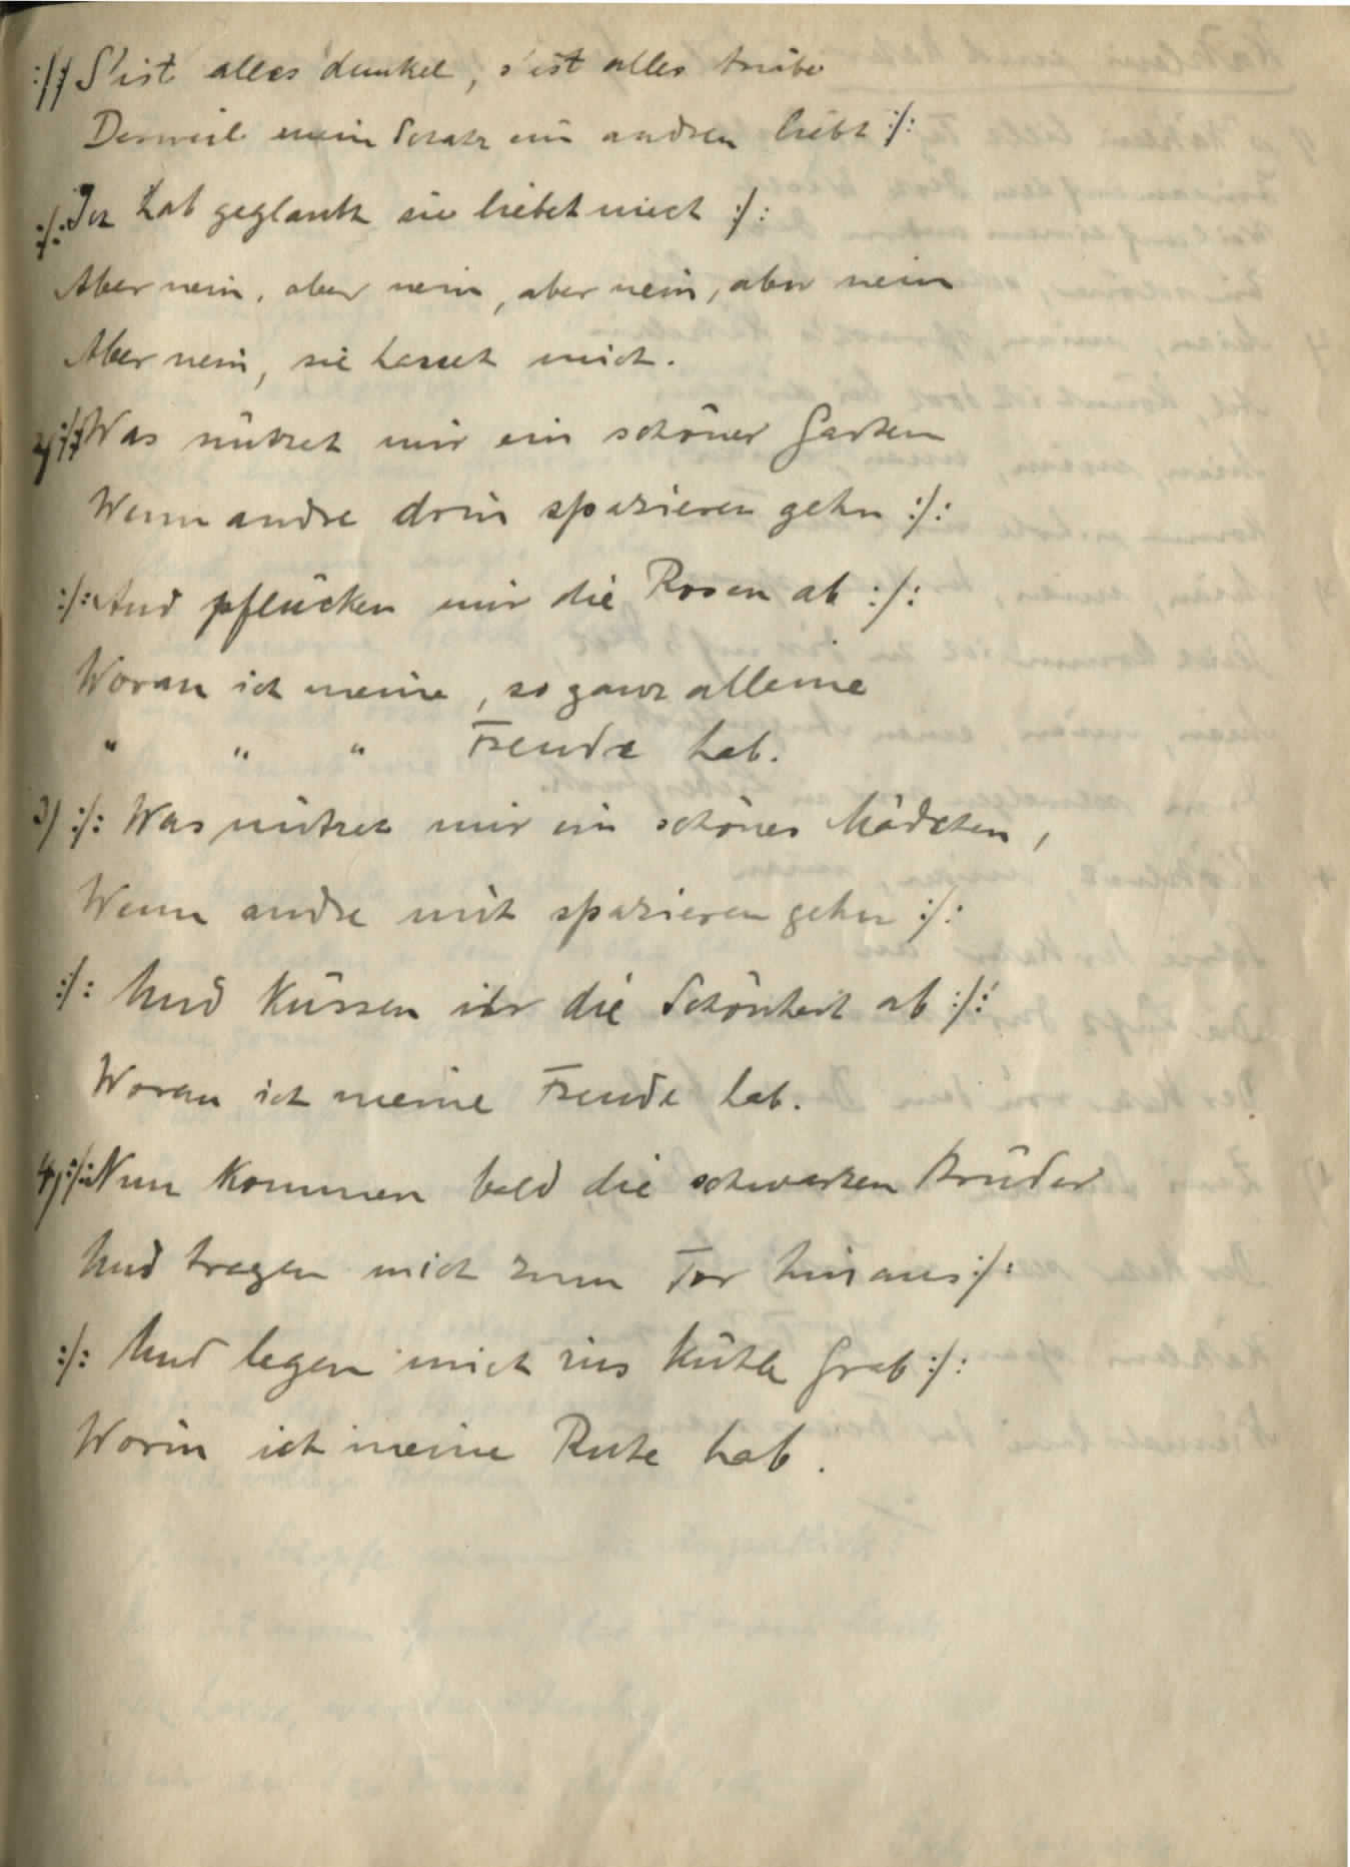 :/: S'ist alles dunkel, s'ist alles trübe
Derweil mein Schatz ein andren liebt :/:
:/: Ich hab geglaubt sie liebet mich :/:
Aber nein, aber nein, aber nein, aber nein
Aber nein, sie hasset mich.
2) :/: Was nützet mir ein schöner Garten
Wenn andre drin spazieren gehn :/:
:/: Und pflücken mir die Rosen ab :/:
Woran ich meine, so ganz alleine
" " " Freude hab.
3) :/: Was nützet mir ein schönes Mädchen,
Wenn andre mit spazieren gehn :/:
:/: Und küssen ihr die Schönheit ab :/:
Woran ich meine Freude hab.
4) :/: Nun kommen bald die schwarzen Brüder
Und tragen mich zum Tor hinaus :/:
:/: Und legen mich ins kühle Grab :/:
Worin ich meine Ruhe hab.